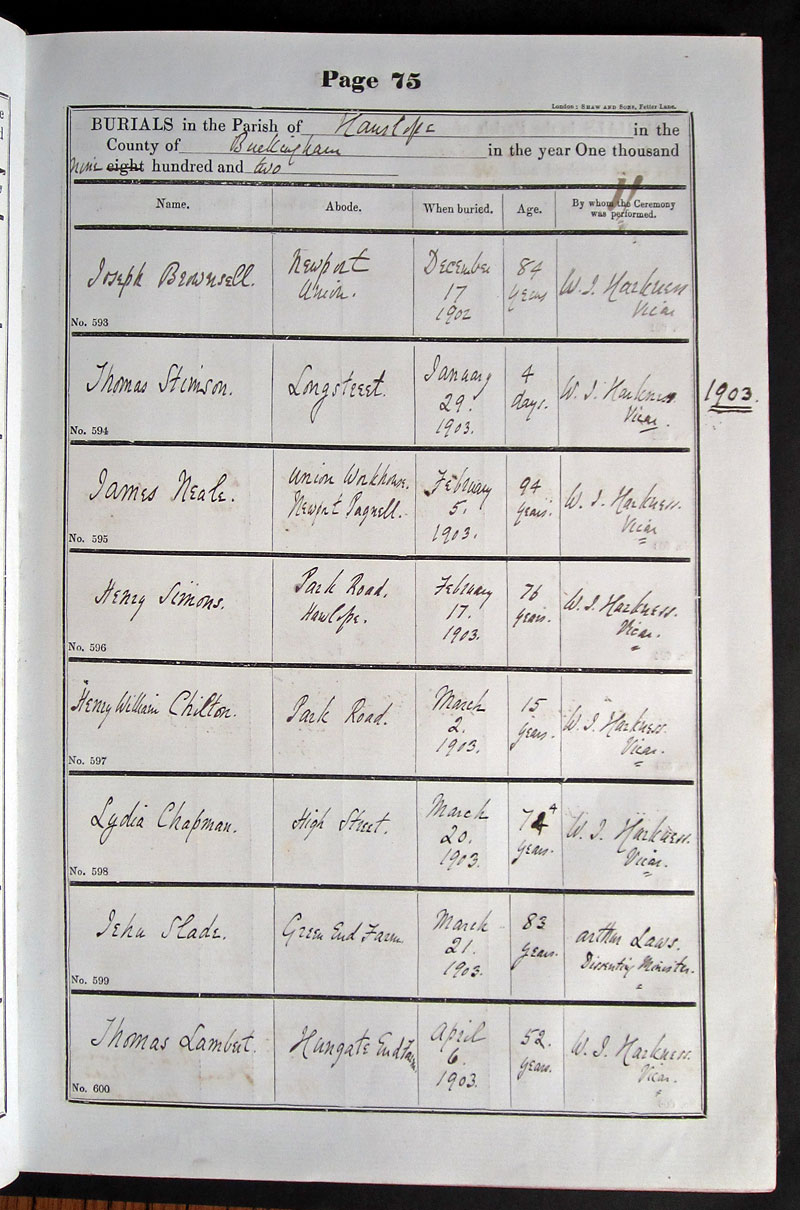 Page 75
London : SHAW AND SONS, Fetter Lane.
BURIALS in the Parish of Hanslope in the
County of Buckingham in the year One thousand
nine eight hundred and two
Name. Abode. When buried. Age. By whom the Ceremony was performed.
Joseph Brownsell. Newport Union. December 17 1902 84 years W. J. Harkness Vicar
No. 593
Thomas Stimson. Longstreet. January 29. 1903. 4 days. W. J. Harkness Vicar. 1903.
No. 594
James Neale. Union Workhouse. Newport Pagnell. February 5. 1903. 94 years. W. J. Harkness. Vicar
No. 595
Henry Simons. Park Road. Hanslope. February 17. 1903. 76 years. W. J. Harkness. Vicar.
No. 596
Henry William Chilton. Park Road. March 2. 1903. 15 years. W. J. Harkness. Vicar.
No. 597
Lydia Chapman. High Street. March 20. 1903. 74 years. W. J. Harkness. Vicar.
No. 598
Jehu Slade. Green End Farm March 21. 1903. 83 years. Arthur Laws. Dissenting Minister.
No. 599
Thomas Lambert. Hungate End Farm April 6. 1903. 52. years. W. J. Harkness. Vicar.
No. 600